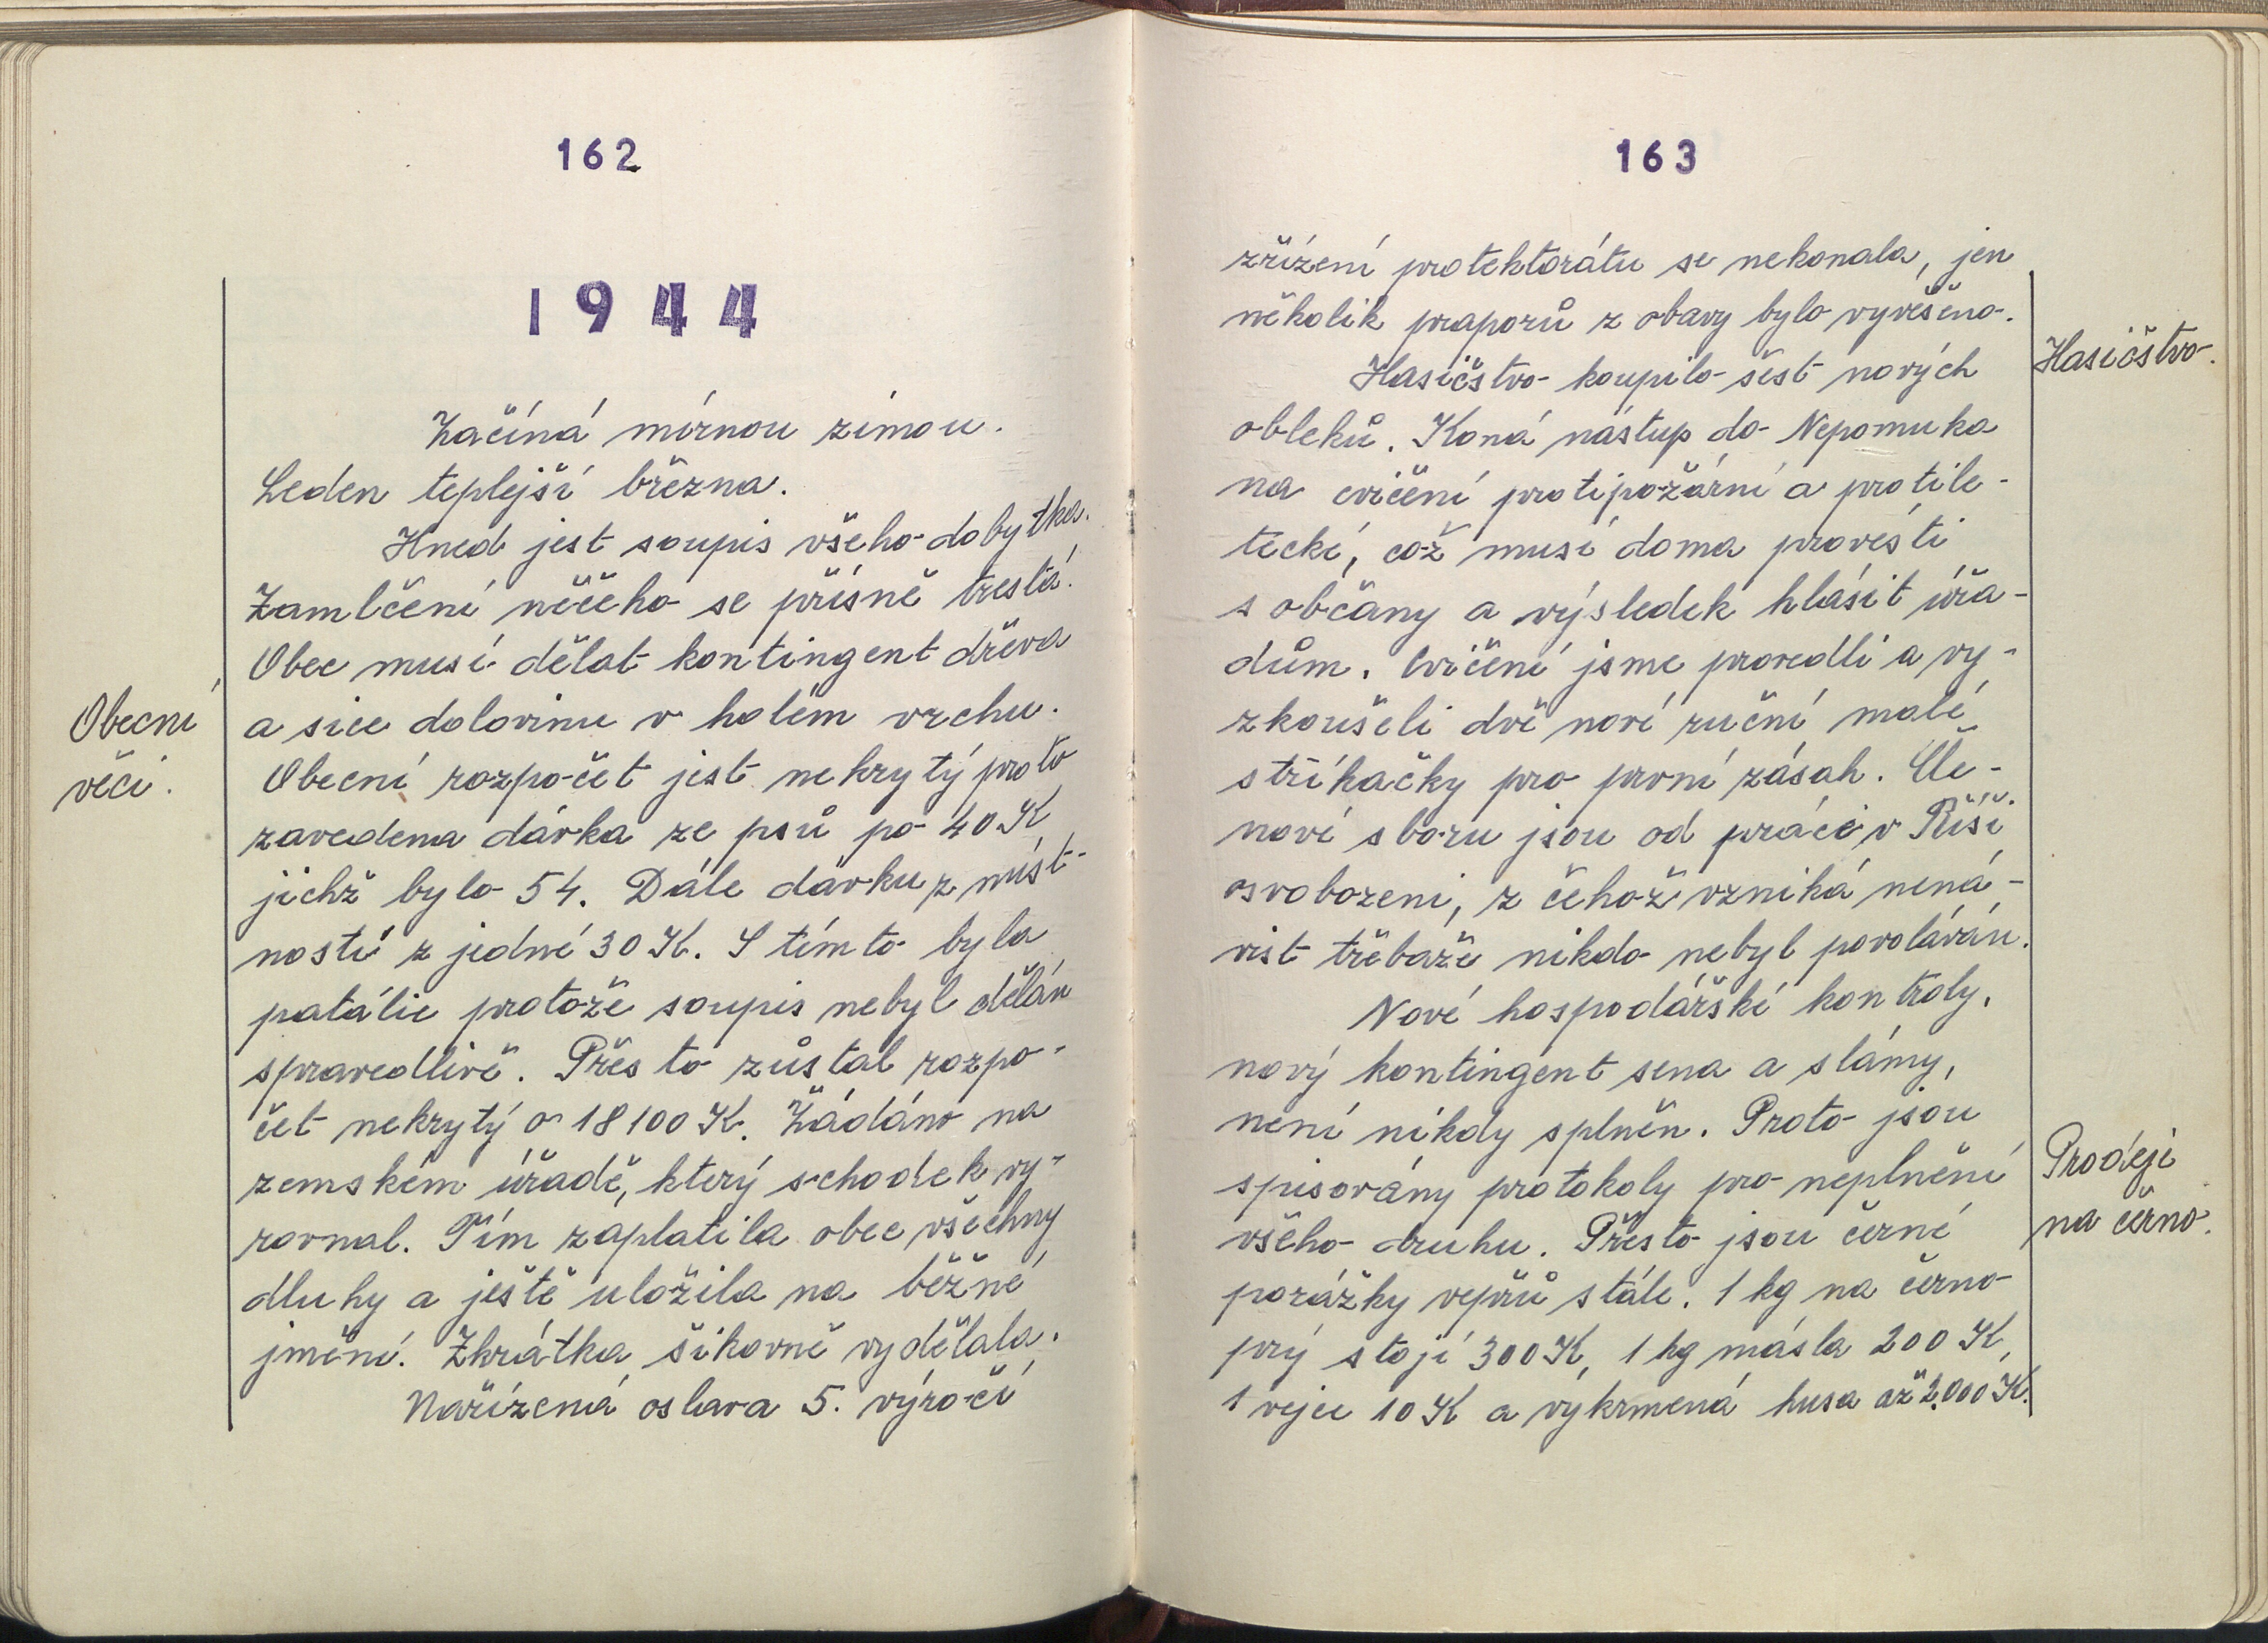 162
1944
Začíná mírnou zimou.
Leden teplejší března.
Hned jest soupis všeho dobytka.
Zamlčení něčeho se přísně trestá.
Obec musí dělat kontingent dřeva
Obecní
a sice dolovinu v holém vrchu.
věci.
Obecní rozpočet jest nekrytý proto
zavedena dávka ze psů po 40 K
jichž bylo 54. Dále dávku z míst-
ností z jedné 30 K. S tímto byla
patálie protože soupis nebyl dělán
spravedlivě. Přes to zůstal rozpo-
čet nekrytý o 18100 K. Žádáno na
zemském úřadě, který schodek vy-
rovnal. Tím zaplatila obec všechny
dluhy a ještě uložila na běžné
jmění. Zkrátka šikovně vydělala.
Nařízená oslava 5. výročí
163
zřízení protektorátu se nekonala, jen
několik praporů z obavy bylo vyvěšeno.
Hasičstvo.
Hasičstvo koupilo šest nových
obleků. Koná nástup do Nepomuka
na cvičení protipožární a protile-
tecké, což musí doma provésti
s občany a výsledek hlásit úřa-
dům. Cvičení jsme provedli a vy-
zkoušeli dvě nové ruční malé
stříkačky pro první zásah. Čle-
nové sboru jsou od práce v Říši
osvobozeni, z čehož vzniká nená-
vist třebaže nikdo nebyl povoláván.
Nové hospodářské kontroly,
nový kontingent sena a slámy,
není nikdy splněn. Proto jsou
Prodeji
spisovány protokoly pro neplnění
na černo.
všeho druhu. Přesto jsou černé
porážky vepřů stále. 1 kg na černo
prý stojí 300 K, 1 kg másla 200 K,
1 vejce 10 K a vykrmená husa až 2.000 K.